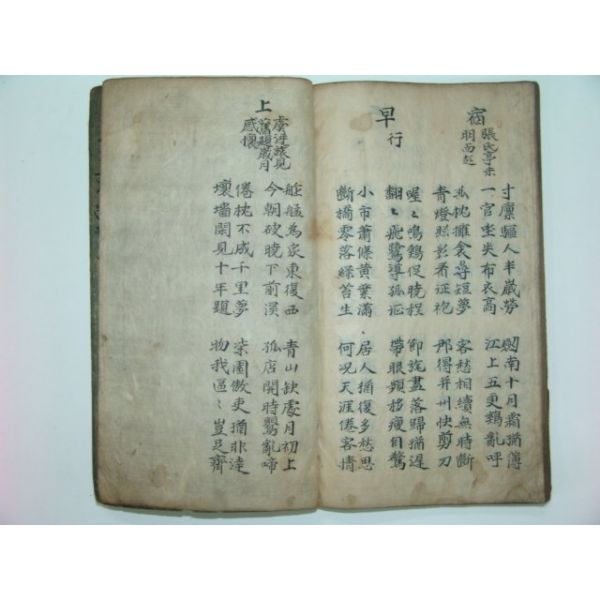 宿
張氏亭未
明而起
寸廩驅人半歲勞 釰南十月霜猶薄
一官坐失布衣高 江上五更鷄亂呼
孤枕擁衾尋短夢 客愁相續無時斷
青燈照影看征袍 那得并州快剪刀
早行
喔々鳴鷄促曉程 節旄盡落歸猶遲
翩々飛鷺導孤征 帶眼頻移瘦自驚
小市蕭條黃葉滿 居人猶復多愁思
斷橋零落綠苔生 何況天涯倦客情
上
虞逆旅見
舊題歲月
感懷
舴艋為家東復西 青山缺處月初上
今朝破曉下前溪 孤店開時鶯亂啼
倦枕不成千里夢 柒園傲吏猶非達
壞墻閒見十年題 物我區々豈足齊